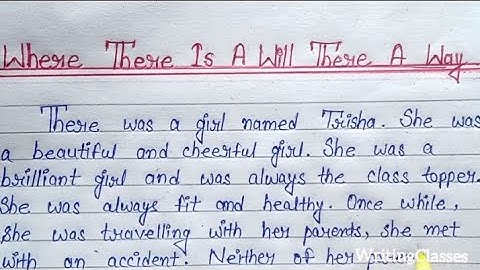 Where There Is A Will There A Way
There was a girl named Trisha. She was
a beautiful and cheerful girl. She was a
brilliant girl and was always the class topper.
She was always fit and healthy. Once while,
she was travelling with her parents, she met
with an accident. Neither of her
WritingClasses